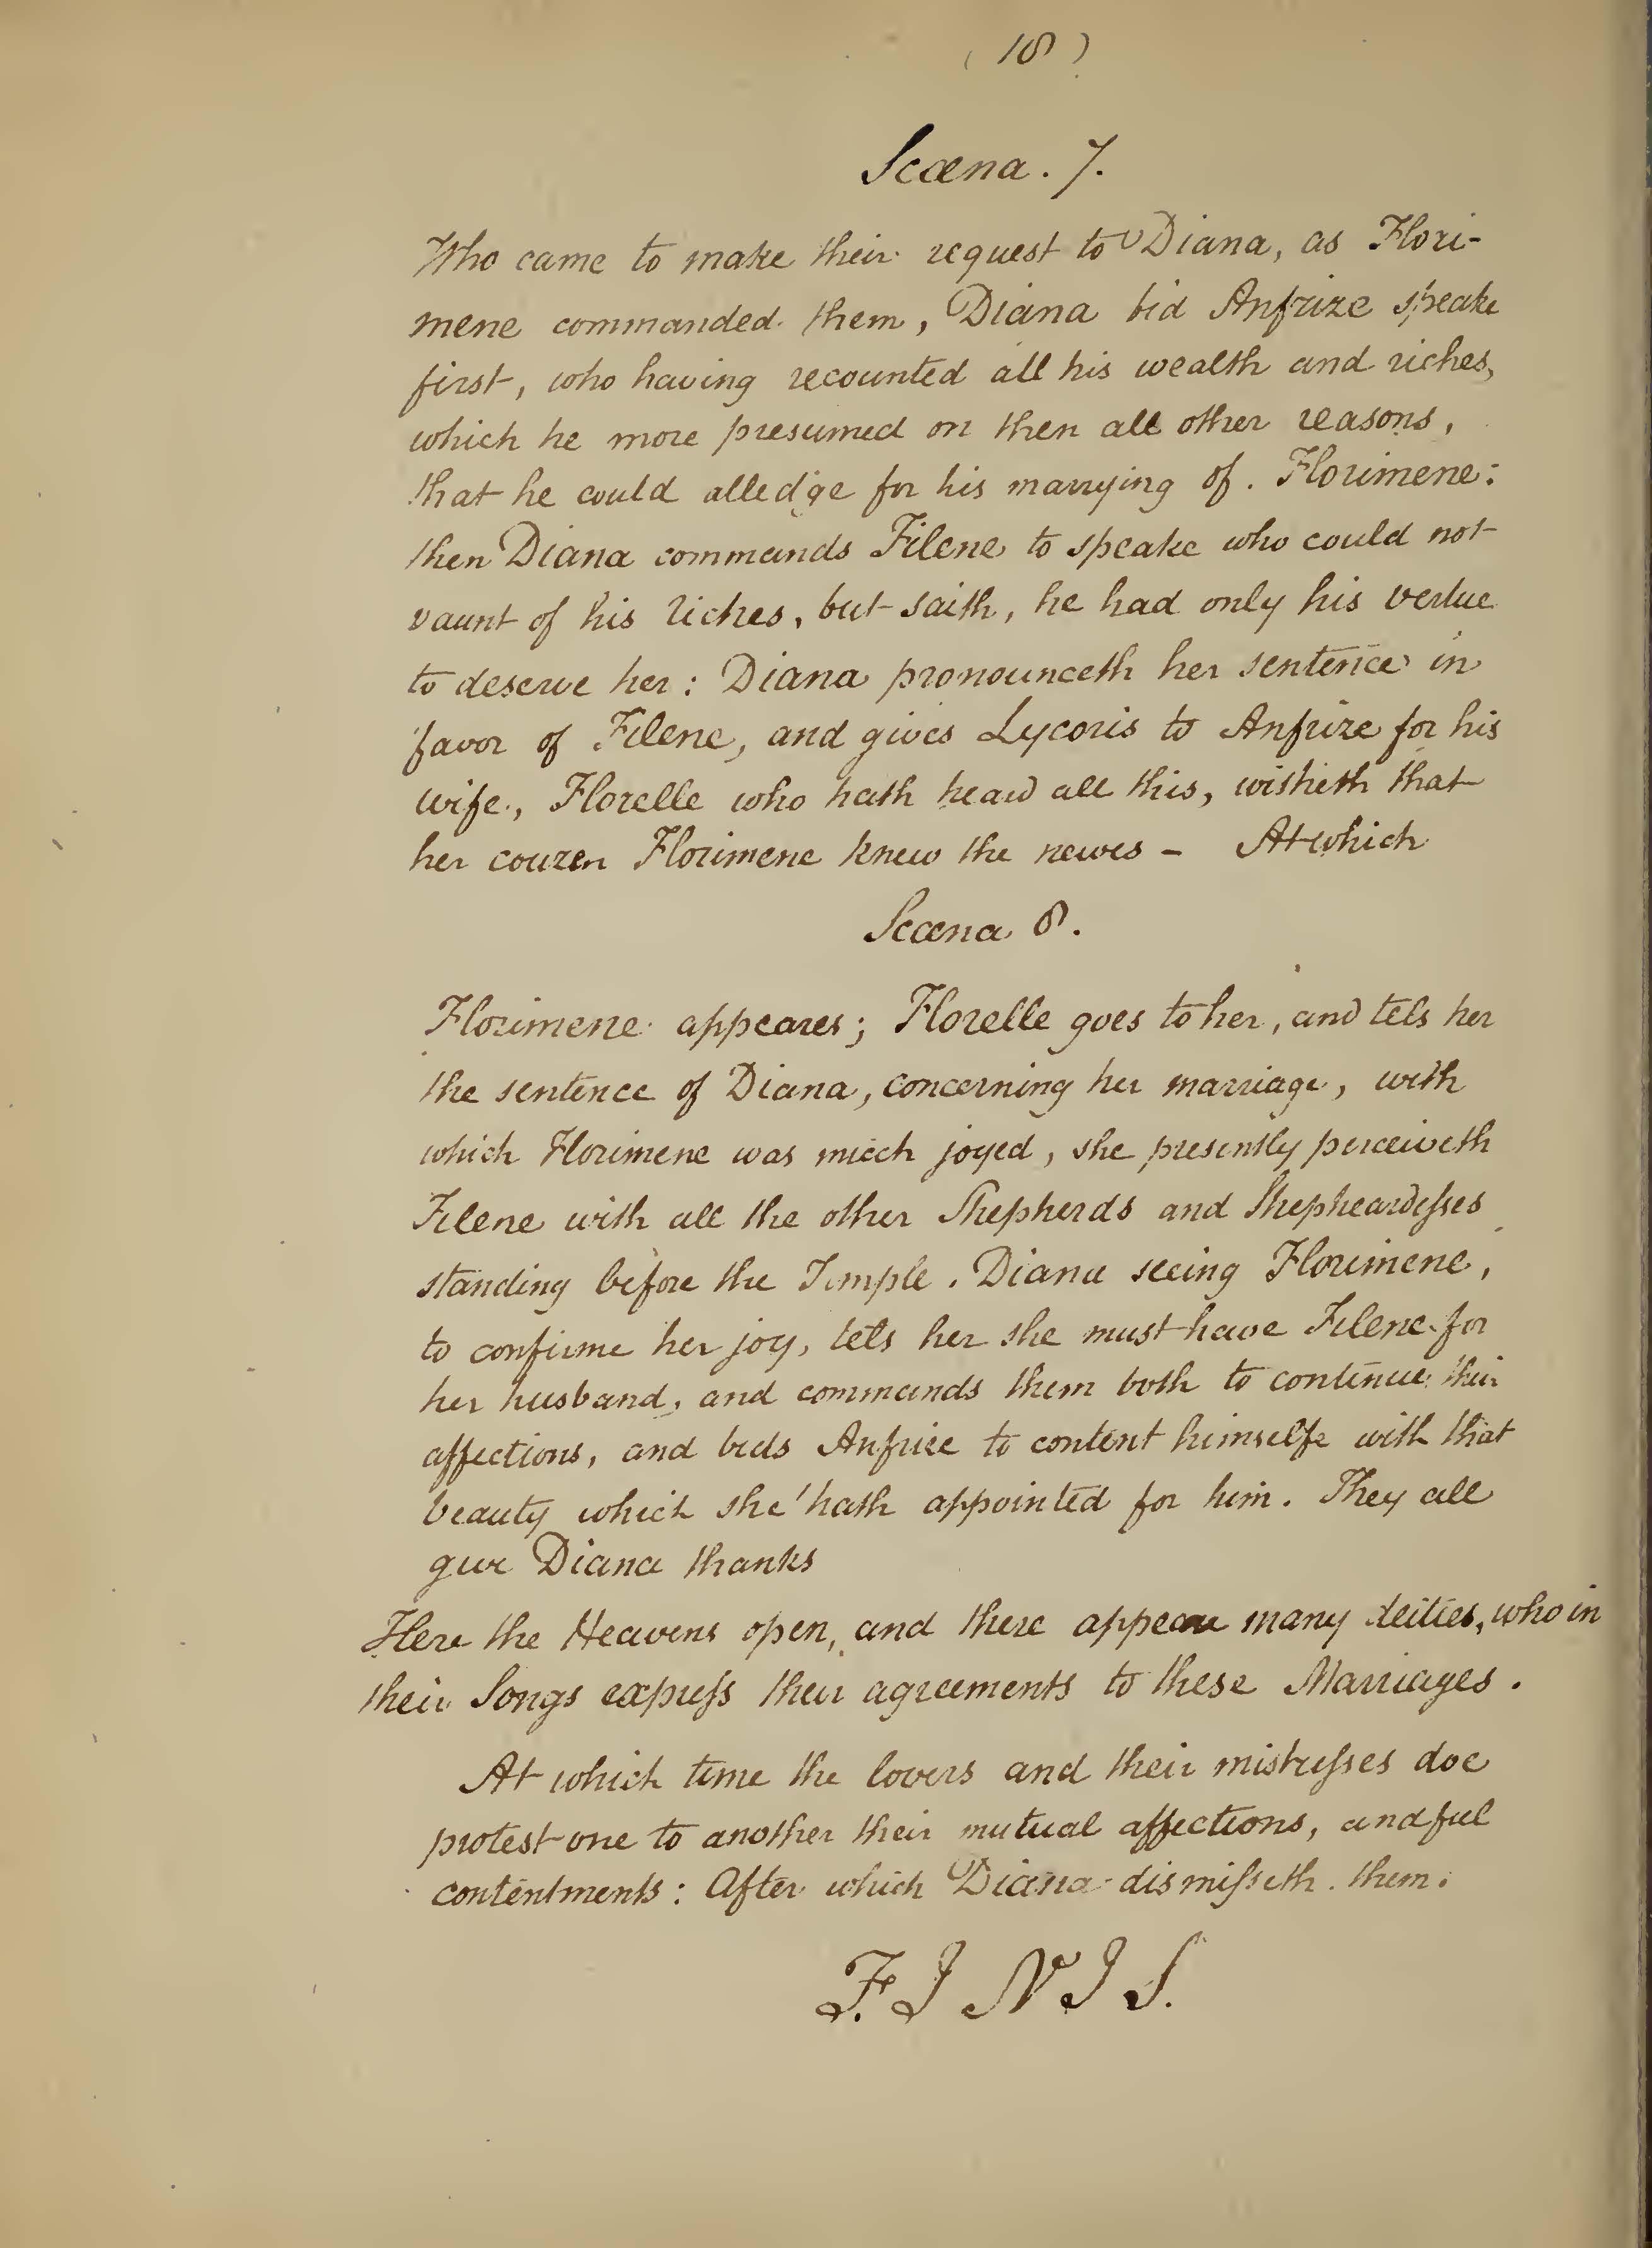 (18)
Scæna. 7.
Who came to make their request to Diana, as Flori-
mene commanded them, Diana bid Anfrize speake
first, who having recounted all his wealth and riches,
which he more presumed on then all other reasons,
that he could alledge for his marrying of. Florimene:
then Diana commands Filene to speake who could not
vaunt of his riches, but saith, he had only his vertue
to deserve her: Diana pronounceth her sentence in
favor of Filene, and gives Lycoris to Anfrize for his
wife, Florelle who hath heard all this, wisheth that
her couzen Florimene knew the newes - At which
Scæna 8.
Florimene appeares; Florelle goes to her, and tels her
the sentence of Diana, concerning her marriage, with
which Florimene was much joyed, she presently perceiveth
Filene with all the other Shepherds and Shepheardesses
standing before the Temple. Diana seeing Florimene,
to confirme her joy, tels her she must have Filene for
her husband, and commands them both to continue their
affections, and bids Anfrize to content himselfe with that
beauty which she hath appointed for him. They all
give Diana thanks
Here the Heavens open, and there appeare many deities, who in
their Songs express their agreements to these Marriages.
At which time the lovers and their mistresses doe
protest one to another their mutual affections, and ful
contentments: After which Diana dismisseth them.
F.I N I S.